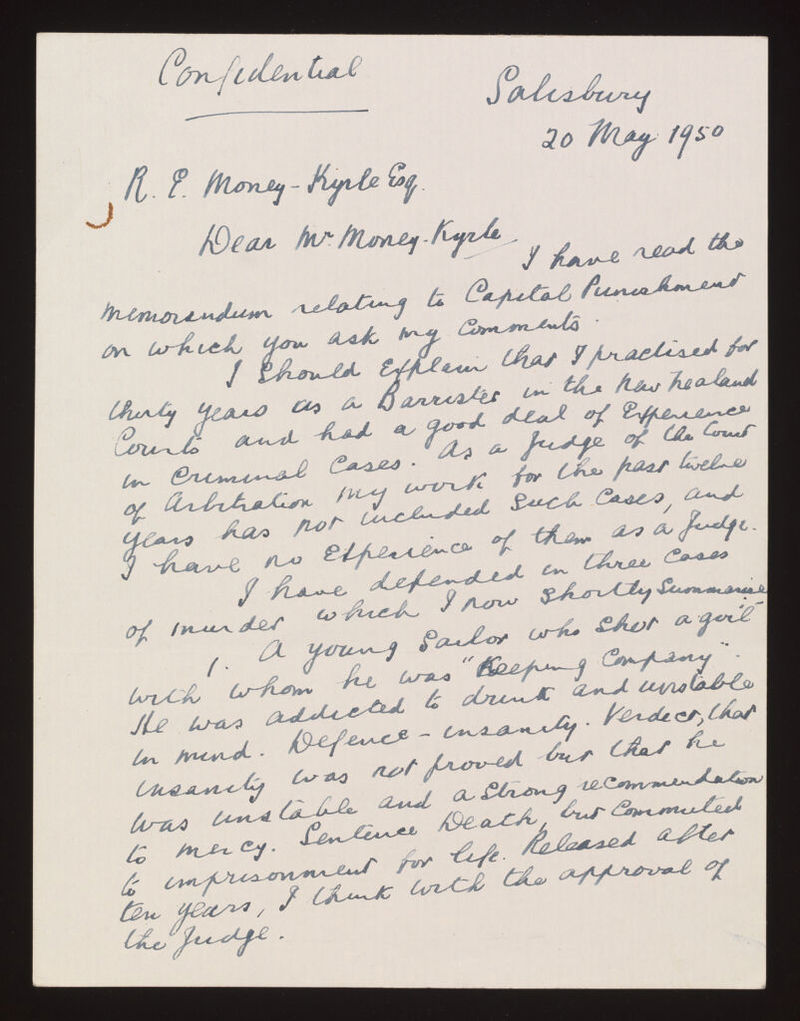 Confidential
Salisbury
20 May 1950
R. E. Money-Kyrle Esq.
Dear Mr. Money-Kyrle
I have read the
memorandum relating to Capital Punishment
on which you ask my Comments.
I should Explain that I practised for
thirty years as a Barrister in the New Zealand
Courts and had a good deal of Experience
in Criminal Cases. As a Judge of the Court
of Arbitration my work for the past twelve
years has not included such Cases, and
I have no Experience of them as a Judge.
I have defended in three Cases
of murder which I now shortly Summarise
1. A young Sailor who shot a girl
with whom he was "Keeping Company".
He was addicted to drink and unstable
in mind. Defence - insanity. Verdict, that
insanity was not proved but that he
was unstable and a strong recommendation
to mercy. Sentence Death, but Commuted
to imprisonment for life. Released after
ten years, I think with the approval of
the Judge.